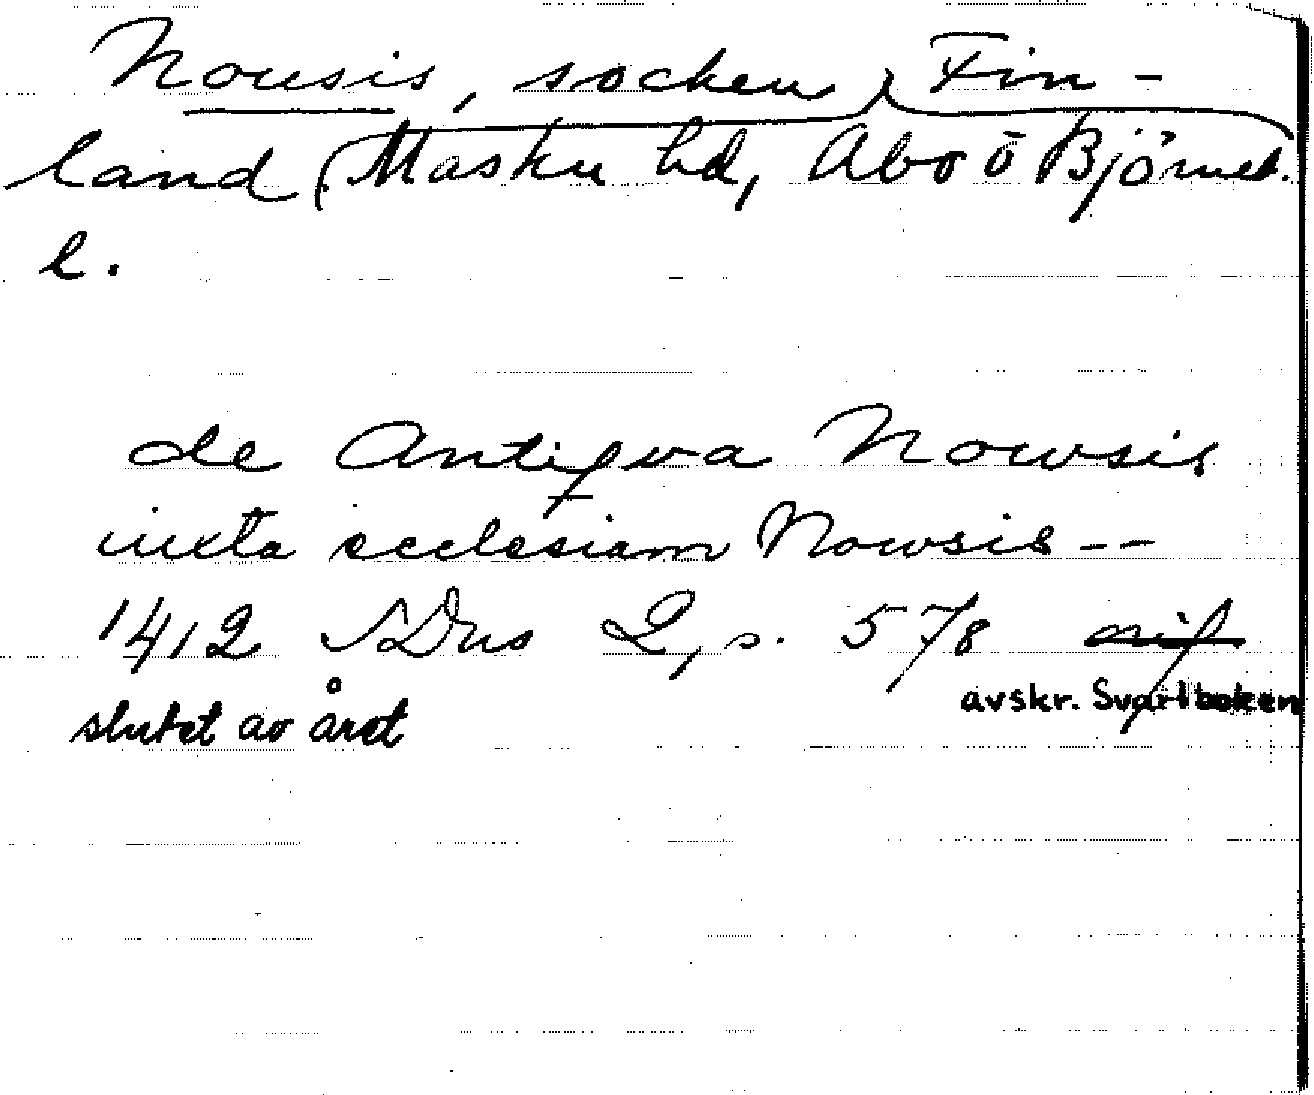 Nousis, socken, Fin-
land (Masku hd, Åbo ō Björneb.
l.
de Antiqva Nowsis
iuxta ecclesiam Nowsis --
1412 SDns 2, s. 578
slutet av året
avskr. Svartboken